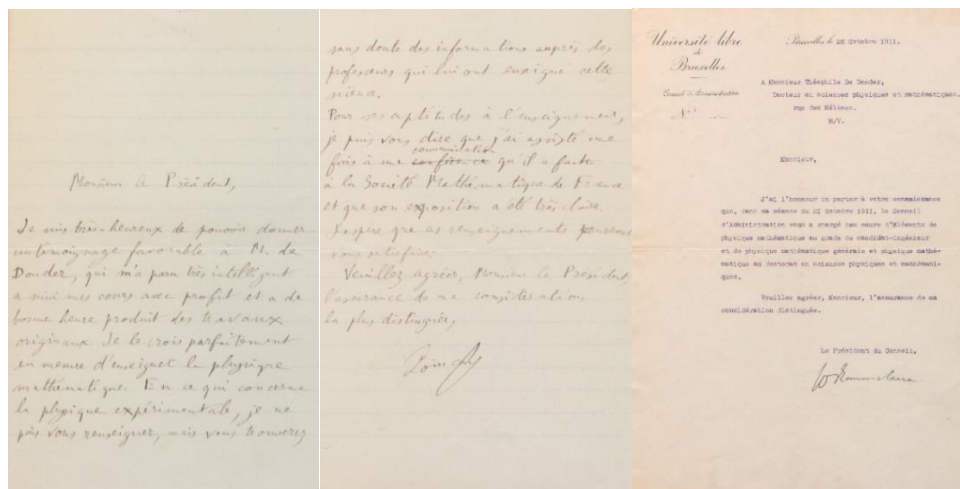 Monsieur le Président,
Je suis très-heureux de pouvoir donner
un témoignage favorable à M. de
Donder, qui m'a paru très intelligent
a suivi mes cours avec profit et a de
bonne heure produit des travaux
originaux. Je le crois parfaitement
en mesure d'enseigner la physique
mathématique. En ce qui concerne
la physique expérimentale, je ne
puis vous renseigner, mais vous trouverez
sans doute des informations auprès des
professeurs qui lui ont enseigné cette
science.
Pour ses aptitudes à l'enseignement,
je puis vous dire que j'ai assisté une
communication
fois à une conférence qu'il a faite
à la Société Mathématique de France
et que son exposition a été très claire.
J'espère que ces renseignements pourront
vous satisfaire.
Veuillez agréer, Monsieur le Président,
l'assurance de ma considération
la plus distinguée,
Poincaré
Université libre
de
Bruxelles
Conseil d'Administration
N°
Bruxelles le 25 Octobre 1911.
A Monsieur Théophile De Donder,
Docteur en sciences physiques et mathématiques,
rue des Mélèzes.
E/V.
Monsieur,
J'ai l'honneur de porter à votre connaissance
que, dans sa séance du 21 Octobre 1911, le Conseil
d'Administration vous a chargé des cours d'Eléments de
physique mathématique au grade de candidat-ingénieur
et de physique mathématique générale et physique mathé-
matique au doctorat en sciences physiques et mathémati-
ques.
Veuillez agréer, Monsieur, l'assurance de ma
considération distinguée.
Le Président du Conseil,